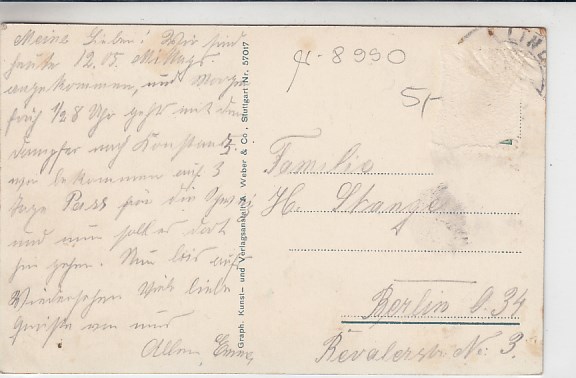 Meine Lieben! Wir sind
heute 12.05. Mittags
angekommen, und Morgen
früh 1/28 Uhr geht mit dem
Dampfer nach Konstanz
wir bekommen auf 3
Tage Pass für die Schweiz
und nun soll es dort
hin gehen. Nun bis auf
Wiedersehen Viele liebe
Grüsse von uns
Allen
Graph. Kunst- und Verlagsanstalt A. Weber & Co., Stuttgart Nr. 57017
8990
5,-
LIND
Familie
H. Stange
Berlin O.34
Revalerstr. No: 3.